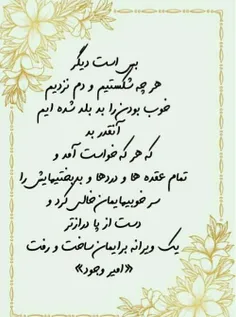 بس است دیگر
هر چه شکستیم و دم نزدیم
خوب بودن را بد بلد شده ایم
آنقدر بد
که هر که خواست آمد و
تمام عقده ها و دردها و بدبختیهایش را
سر خوبیهایمان خالی کرد و
دست از پا درازتر
یک ویرانه برایمان ساخت و رفت
«امیر وجود»